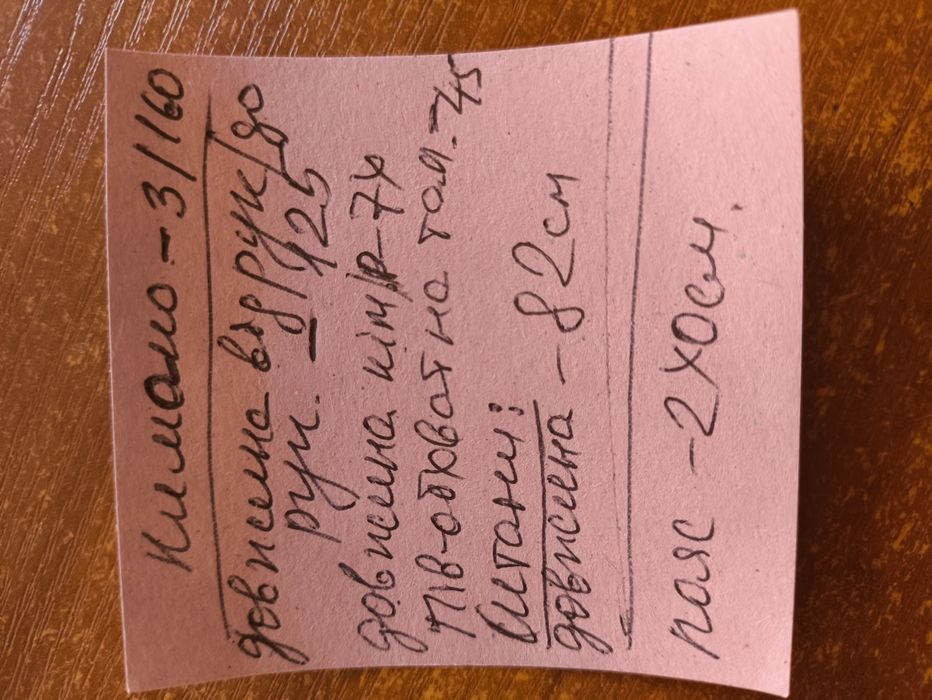 Кимано - 3/160
довжина від рук/до
рук. - 125
довжина кім/р - 7x
пів-обхват на тал. - 45
Штани:
довжина - 82 см
пояс - 2x0см.